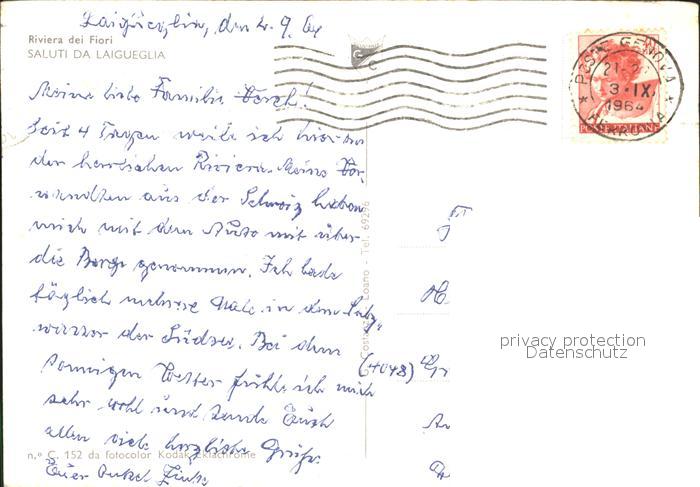 Laigueglia, den 2. 9. 64
Riviera dei Fiori
SALUTI DA LAIGUEGLIA
Meine liebe Familie
Seit 4 Tagen weile ich hier an
der herrlichen Riviera. Meine Ver-
wandten aus der Schweiz haben
mich mit dem Auto mit über
die Berge genommen. Ich bade
täglich mehrere Male in dem Salz-
wasser der Südsee. Bei dem
sonnigen Wetter fühle ich mich
sehr wohl und sende Euch
allen viele herzliche Grüße
Euer Onkel
n.º C. 152 da fotocolor Kodak Ektachrome
Loano - Tel. 69296
POSTE GENOVA
3 · IX.
1964
POSTE ITALIANE
(4048)
privacy protection
Datenschutz